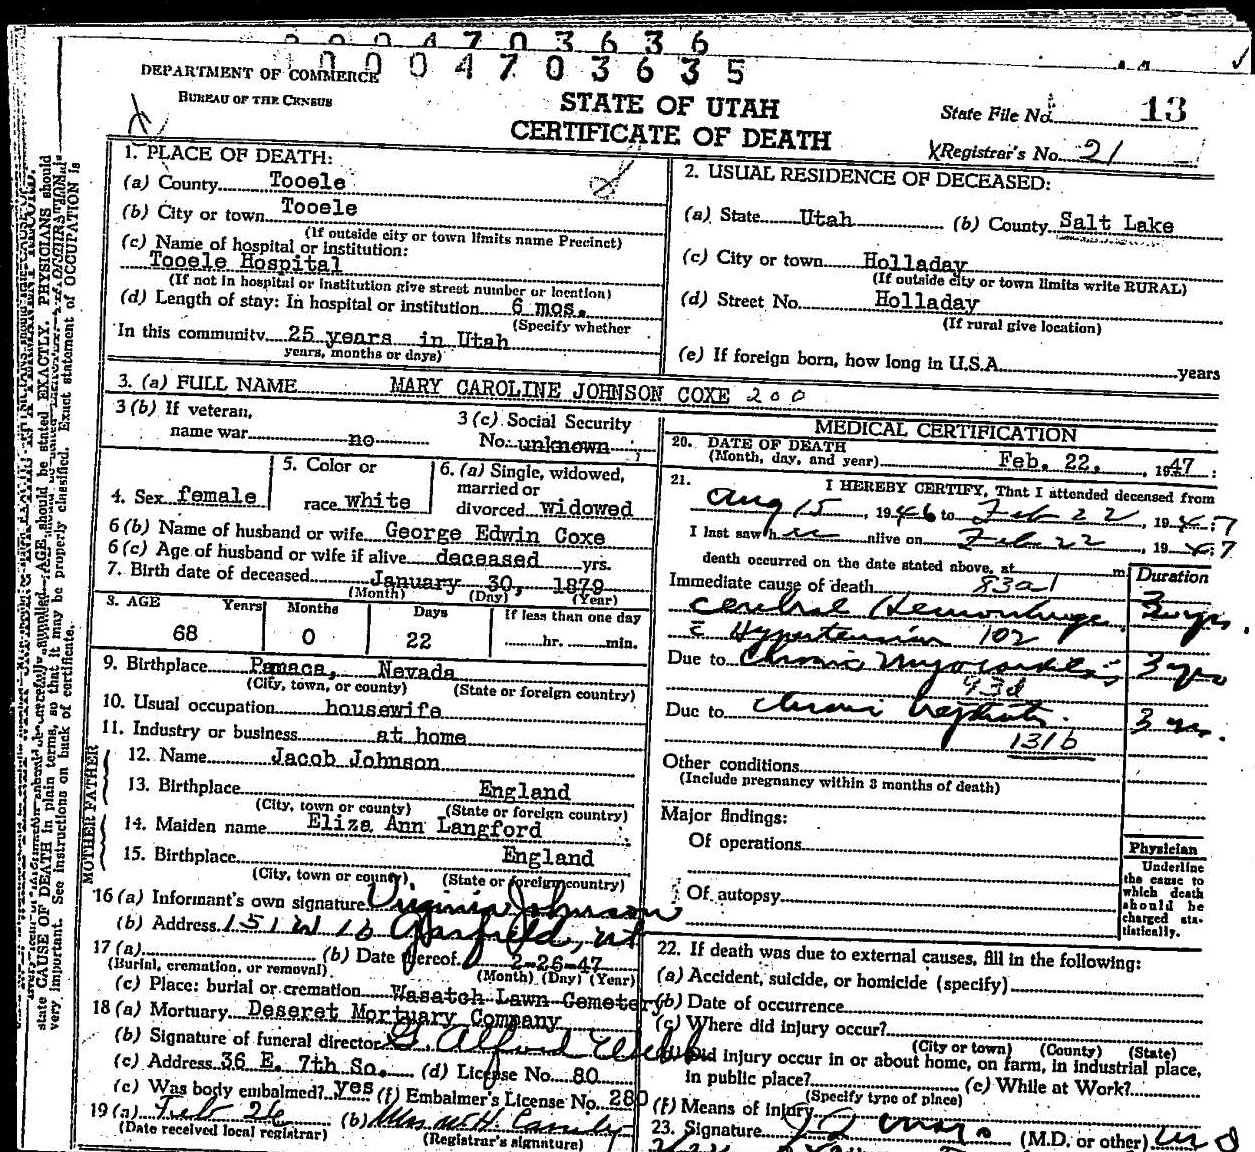 0 0 0 4 7 0 3 6 3 6
0 0 0 4 7 0 3 6 3 5
DEPARTMENT OF COMMERCE
BUREAU OF THE CENSUS
STATE OF UTAH
CERTIFICATE OF DEATH
State File No. 13
Registrar's No. 21
1. PLACE OF DEATH:
(a) County Tooele
(b) City or town Tooele
(If outside city or town limits name Precinct)
(c) Name of hospital or institution:
Tooele Hospital
(If not in hospital or institution give street number or location)
(d) Length of stay: In hospital or institution 6 mos.
(Specify whether
In this community 25 years in Utah
years, months or days)
2. USUAL RESIDENCE OF DECEASED:
(a) State Utah (b) County Salt Lake
(c) City or town Holladay
(If outside city or town limits write RURAL)
(d) Street No. Holladay
(If rural give location)
(e) If foreign born, how long in U.S.A. years
3. (a) FULL NAME MARY CAROLINE JOHNSON COXE 200
3 (b) If veteran, name war no
3 (c) Social Security No. unknown
4. Sex female
5. Color or race white
6. (a) Single, widowed, married or divorced widowed
6 (b) Name of husband or wife George Edwin Coxe
6 (c) Age of husband or wife if alive deceased yrs.
7. Birth date of deceased January 30, 1879
(Month) (Day) (Year)
8. AGE Years Months Days If less than one day
68 0 22 hr. min.
9. Birthplace Panaca, Nevada
(City, town, or county) (State or foreign country)
10. Usual occupation housewife
11. Industry or business at home
FATHER
12. Name Jacob Johnson
13. Birthplace England
(City, town or county) (State or foreign country)
MOTHER
14. Maiden name Eliza Ann Langford
15. Birthplace England
(City, town or county) (State or foreign country)
16 (a) Informant's own signature Virginia Johnson
(b) Address 151 W 16 Garfield, Ut
17 (a) (b) Date thereof 2-26-47
(Burial, cremation, or removal) (Month) (Day) (Year)
(c) Place: burial or cremation Wasatch Lawn Cemetery
18 (a) Mortuary Deseret Mortuary Company
(b) Signature of funeral director G. Alford Webb
(c) Address 36 E. 7th So. (d) License No. 80
(e) Was body embalmed? yes (f) Embalmer's License No. 280
19 (a) Feb 26 (b) Mrs W H
(Date received local registrar) (Registrar's signature)
MEDICAL CERTIFICATION
20. DATE OF DEATH
(Month, day, and year) Feb. 22, 1947
21. I HEREBY CERTIFY, That I attended deceased from
Aug 15, 1946 to Feb 22, 1947
I last saw her alive on Feb 22, 1947
death occurred on the date stated above, at m
Duration
Immediate cause of death 83a1
Cerebral Hemorrhage 3 yrs.
c̄ Hypertension 102
Due to Chronic Myocarditis 3 yrs
93d
Due to Chronic Nephritis. 3 yrs.
131b
Other conditions
(Include pregnancy within 3 months of death)
Major findings:
Of operations
Of autopsy
Physician
Underline
the cause to
which death
should be
charged sta-
tistically.
22. If death was due to external causes, fill in the following:
(a) Accident, suicide, or homicide (specify)
(b) Date of occurrence
(c) Where did injury occur?
(City or town) (County) (State)
Did injury occur in or about home, on farm, in industrial place,
in public place? (e) While at Work?
(Specify type of place)
(f) Means of injury
23. Signature (M.D. or other) M D
AGE should be stated EXACTLY. PHYSICIANS should
state CAUSE OF DEATH in plain terms, so that it may be properly classified. Exact statement of OCCUPATION is
very important. See instructions on back of certificate.